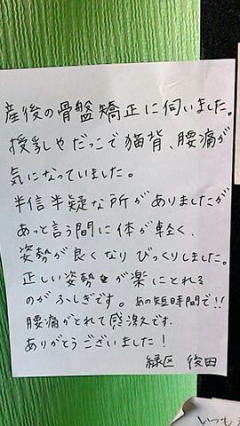 産後の骨盤矯正に伺いました。
授乳やだっこで猫背、腰痛が
気になっていました。
半信半疑な所がありましたが
あっと言う間に体が軽く、
姿勢が良くなり びっくりしました。
正しい姿勢が楽にとれる
のがふしぎです。あの短時間で!!
腰痛がとれて感激です。
ありがとうございました!
緑区 後田
いつも